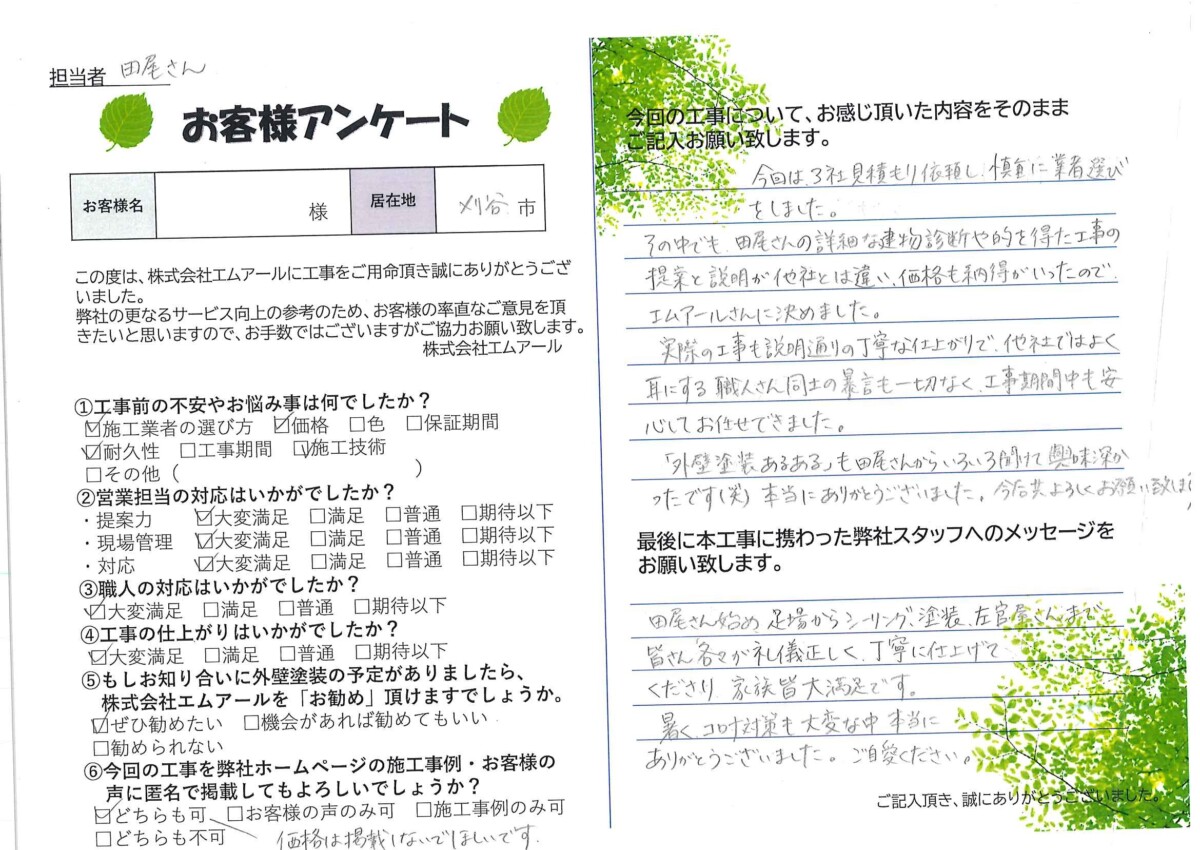 担当者 田尾さん
お客様アンケート
お客様名 様 居在地 刈谷 市
この度は、株式会社エムアールに工事をご用命頂き誠にありがとうござ
いました。
弊社の更なるサービス向上の参考のため、お客様の率直なご意見を頂
きたいと思いますので、お手数ではございますがご協力お願い致します。
株式会社エムアール
①工事前の不安やお悩み事は何でしたか？
☑施工業者の選び方 ☑価格 □色 □保証期間
☑耐久性 □工事期間 ☑施工技術
□その他（ ）
②営業担当の対応はいかがでしたか？
・提案力 ☑大変満足 □満足 □普通 □期待以下
・現場管理 ☑大変満足 □満足 □普通 □期待以下
・対応 ☑大変満足 □満足 □普通 □期待以下
③職人の対応はいかがでしたか？
☑大変満足 □満足 □普通 □期待以下
④工事の仕上がりはいかがでしたか？
☑大変満足 □満足 □普通 □期待以下
⑤もしお知り合いに外壁塗装の予定がありましたら、
株式会社エムアールを「お勧め」頂けますでしょうか。
☑ぜひ勧めたい □機会があれば勧めてもいい
□勧められない
⑥今回の工事を弊社ホームページの施工事例・お客様の
声に匿名で掲載してもよろしいでしょうか？
☑どちらも可 □お客様の声のみ可 □施工事例のみ可
□どちらも不可 価格は掲載しないでほしいです。
今回の工事について、お感じ頂いた内容をそのまま
ご記入お願い致します。
今回は、3社見積もり依頼し、慎重に業者選び
をしました。
その中でも、田尾さんの詳細な建物診断や的を得た工事の
提案と説明が他社とは違い、価格も納得がいったので、
エムアールさんに決めました。
実際の工事も説明通りの丁寧な仕上がりで、他社ではよく
耳にする職人さん同士の暴言も一切なく、工事期間中も安
心してお任せできました。
「外壁塗装あるある」も田尾さんからいろいろ聞けて興味深か
ったです(笑) 本当にありがとうございました。今后共よろしくお願い致しま
最後に本工事に携わった弊社スタッフへのメッセージを
お願い致します。
田尾さん始め、足場からシーリング、塗装、左官屋さんまで
皆さん各々が礼儀正しく、丁寧に仕上げて
くださり、家族皆大満足です。
暑く、コロナ対策も大変な中本当に
ありがとうございました。ご自愛ください。
ご記入頂き、誠にありがとうございました。